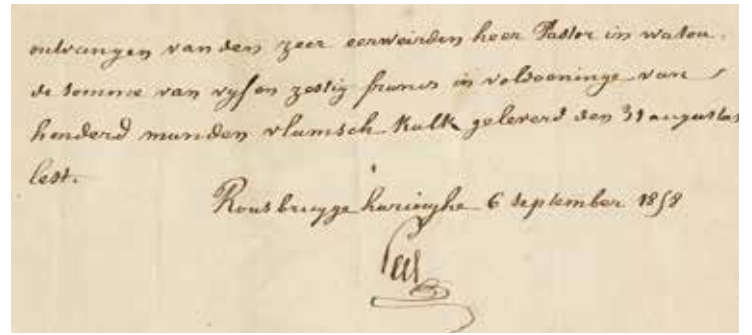 ontvangen van den zeer eerweirden heer Pastor in watou.
de somme van vyf en zestig francs in voldoeninge van
honderd manden vlamsch Kalk geleverd den 31 augustus
lest.
Rousbrugge haringhe 6 september 1858